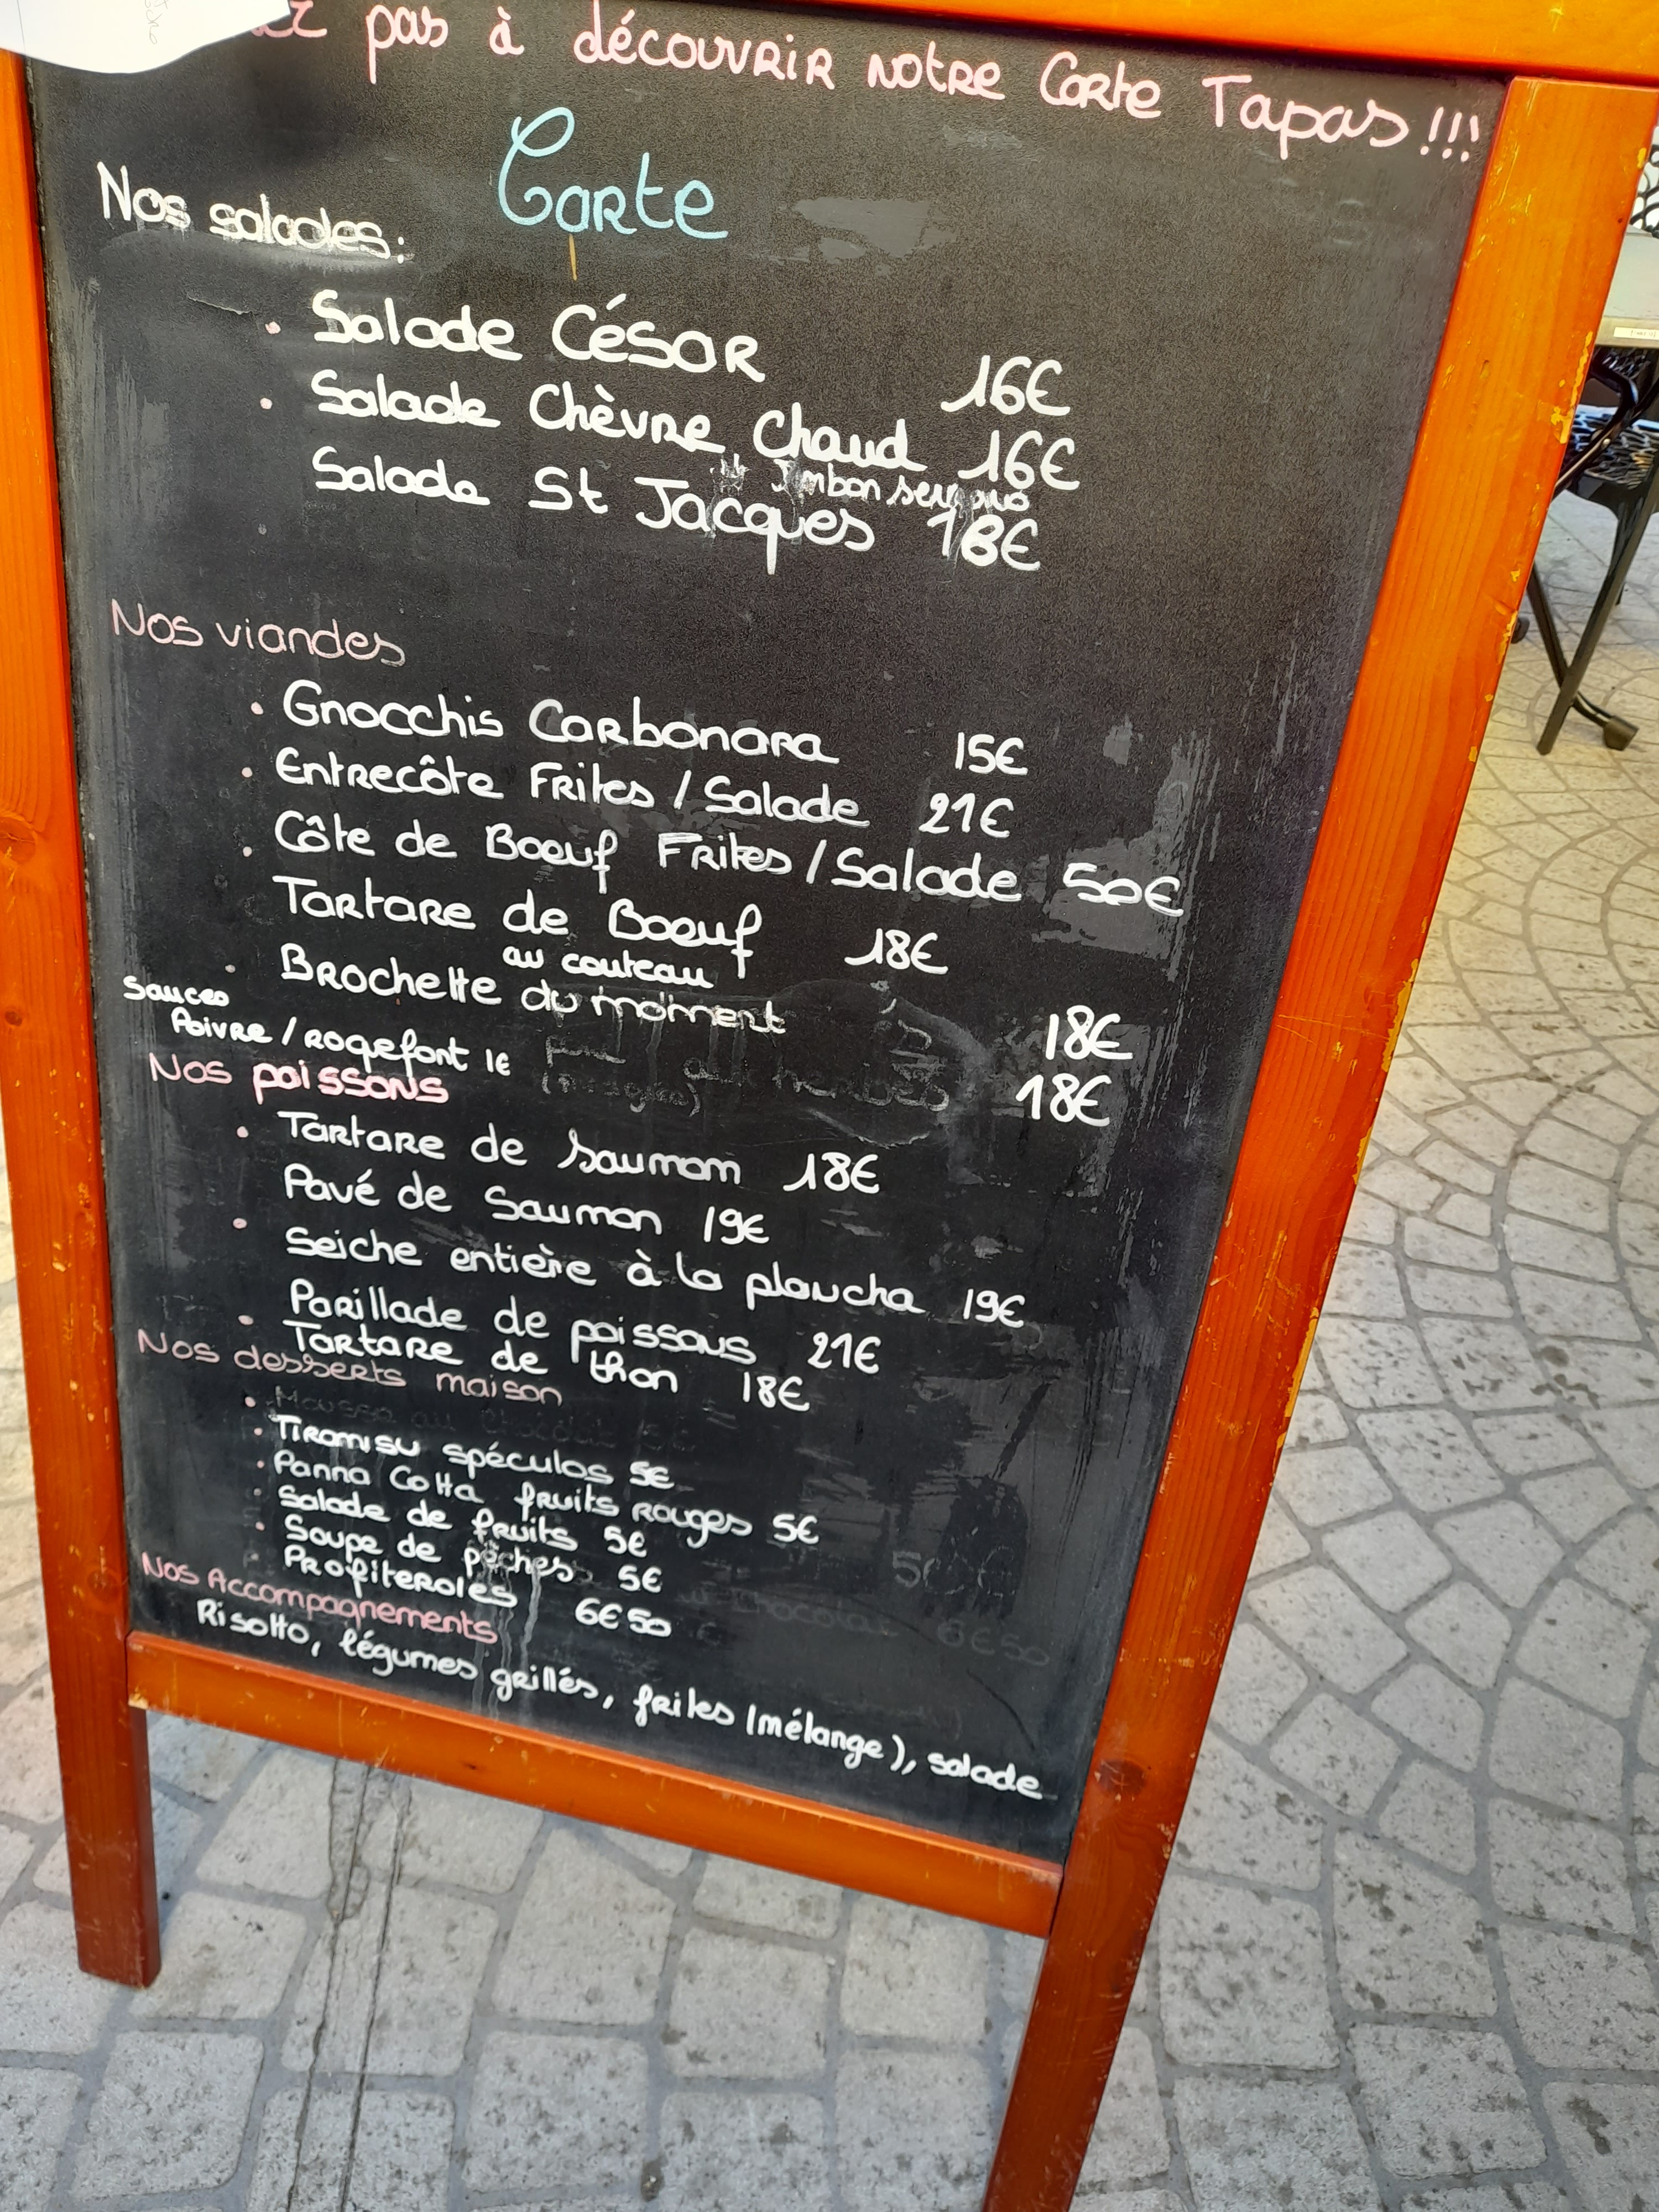 pas à découvrir notre Carte Tapas !!!
Carte
Nos salades :
. Salade César 16€
. Salade Chèvre Chaud 16€
Jambon serrano
Salade St Jacques 18€
Nos viandes
. Gnocchis Carbonara 15€
. Entrecôte Frites / Salade 21€
. Côte de Boeuf Frites / Salade 50€
Tartare de Boeuf 18€
au couteau
. Brochette du moment 18€
Sauces
Poivre / roquefort 1€
18€
Nos poissons
. Tartare de Saumon 18€
Pavé de Saumon 19€
. Seiche entière à la plancha 19€
Parillade de poissons 21€
. Tartare de thon 18€
Nos desserts maison
. Tiramisu spéculos 5€
. Panna Cotta fruits rouges 5€
. Salade de fruits 5€
. Soupe de pêches 5€
Profiteroles 6€50
Nos Accompagnements
Risotto, légumes grillés, frites (mélange), salade